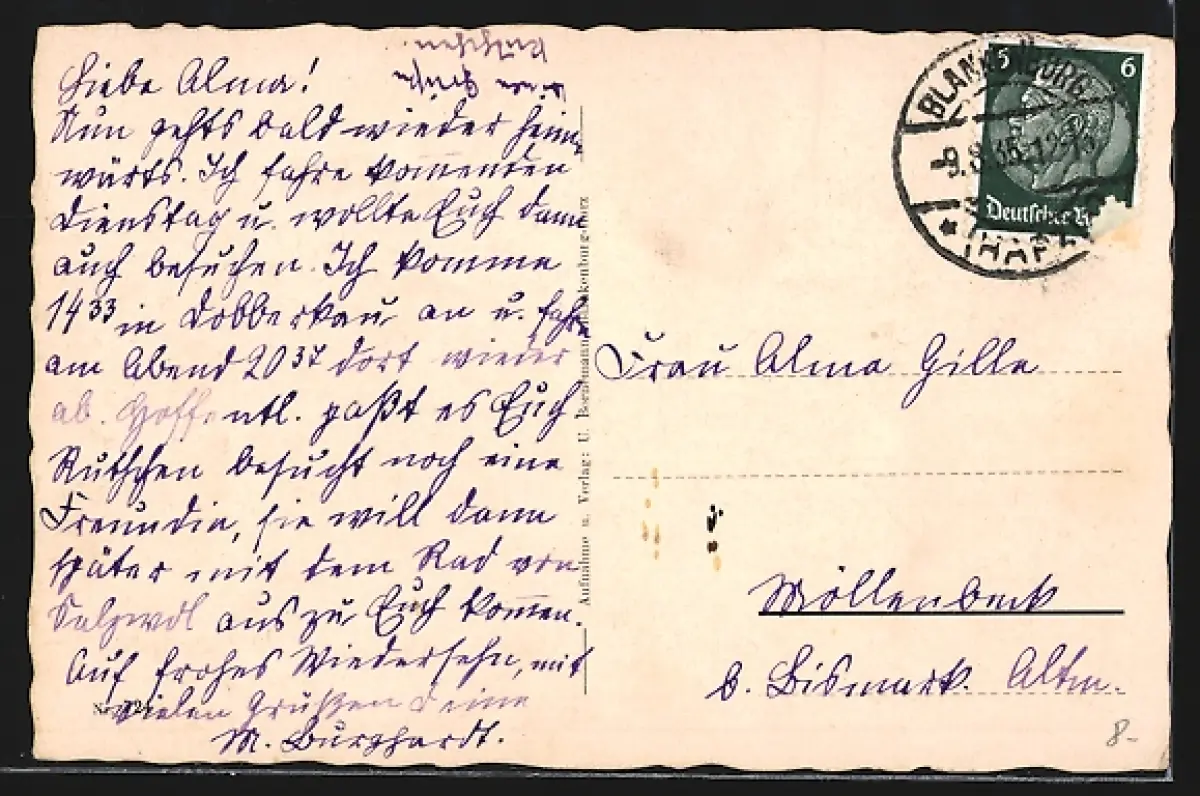 Liebe Alma!
Nun gehts bald wieder heim-
wärts. Ich fahre kommenden
Dienstag u. wollte Euch dann
auch besuchen. Ich komme
14³³ in Dobberkau an u. fahre
am Abend 20³⁷ dort wieder
ab. Hoffentl. paßt es Euch
Ruthchen besucht noch eine
Freundin, sie will dann
später mit dem Rad von
Salzwdl aus zu Euch kommen.
Auf frohes Wiedersehn, mit
vielen Grüßen Deine
M. Burghardt.
Ruthchen
Aufnahme u. Verlag: U. Bornemann, Blankenburg-Harz
BLANKENBURG
-9.8.35.12-
(HARZ)
5 6
Deutsches
Frau Alma Gille
Möllenbeck
b. Bismark. Altm.
8-